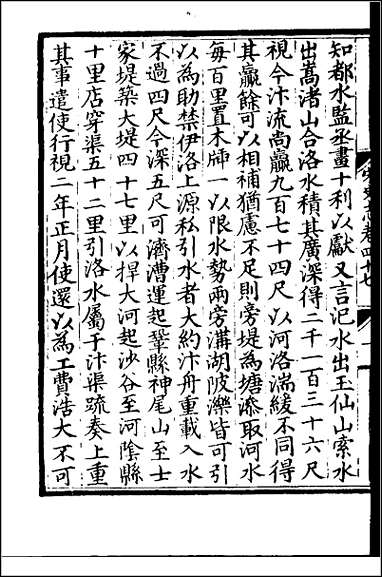 知都水監丞畫十利以獻又言汜水出玉仙山索水
出嵩渚山合洛水積其廣深得二千一百三十六尺
視今汴流尚贏九百七十四尺以河洛湍緩不同得
其贏餘可以相補猶慮不足則旁堤為塘滲取河水
每百里置木牐一以限水勢兩旁溝湖陂濼皆可引
以為助禁伊洛上源私引水者大約汴舟重載入水
不過四尺今深五尺可濟漕運起鞏縣神尾山至士
家堤築大堤四十七里以捍大河起沙谷至河陰縣
十里店穿渠五十二里引洛水屬于汴渠疏奏上重
其事遣使行視二年正月使還以為工費浩大不可